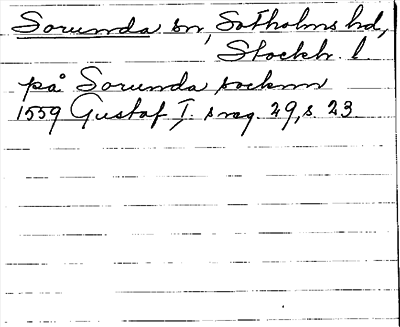 Sorunda sn, Sotholms hd,
Stockh. l.
på Sorunda socknn
1559 Gustaf I:s reg. 29, s. 23